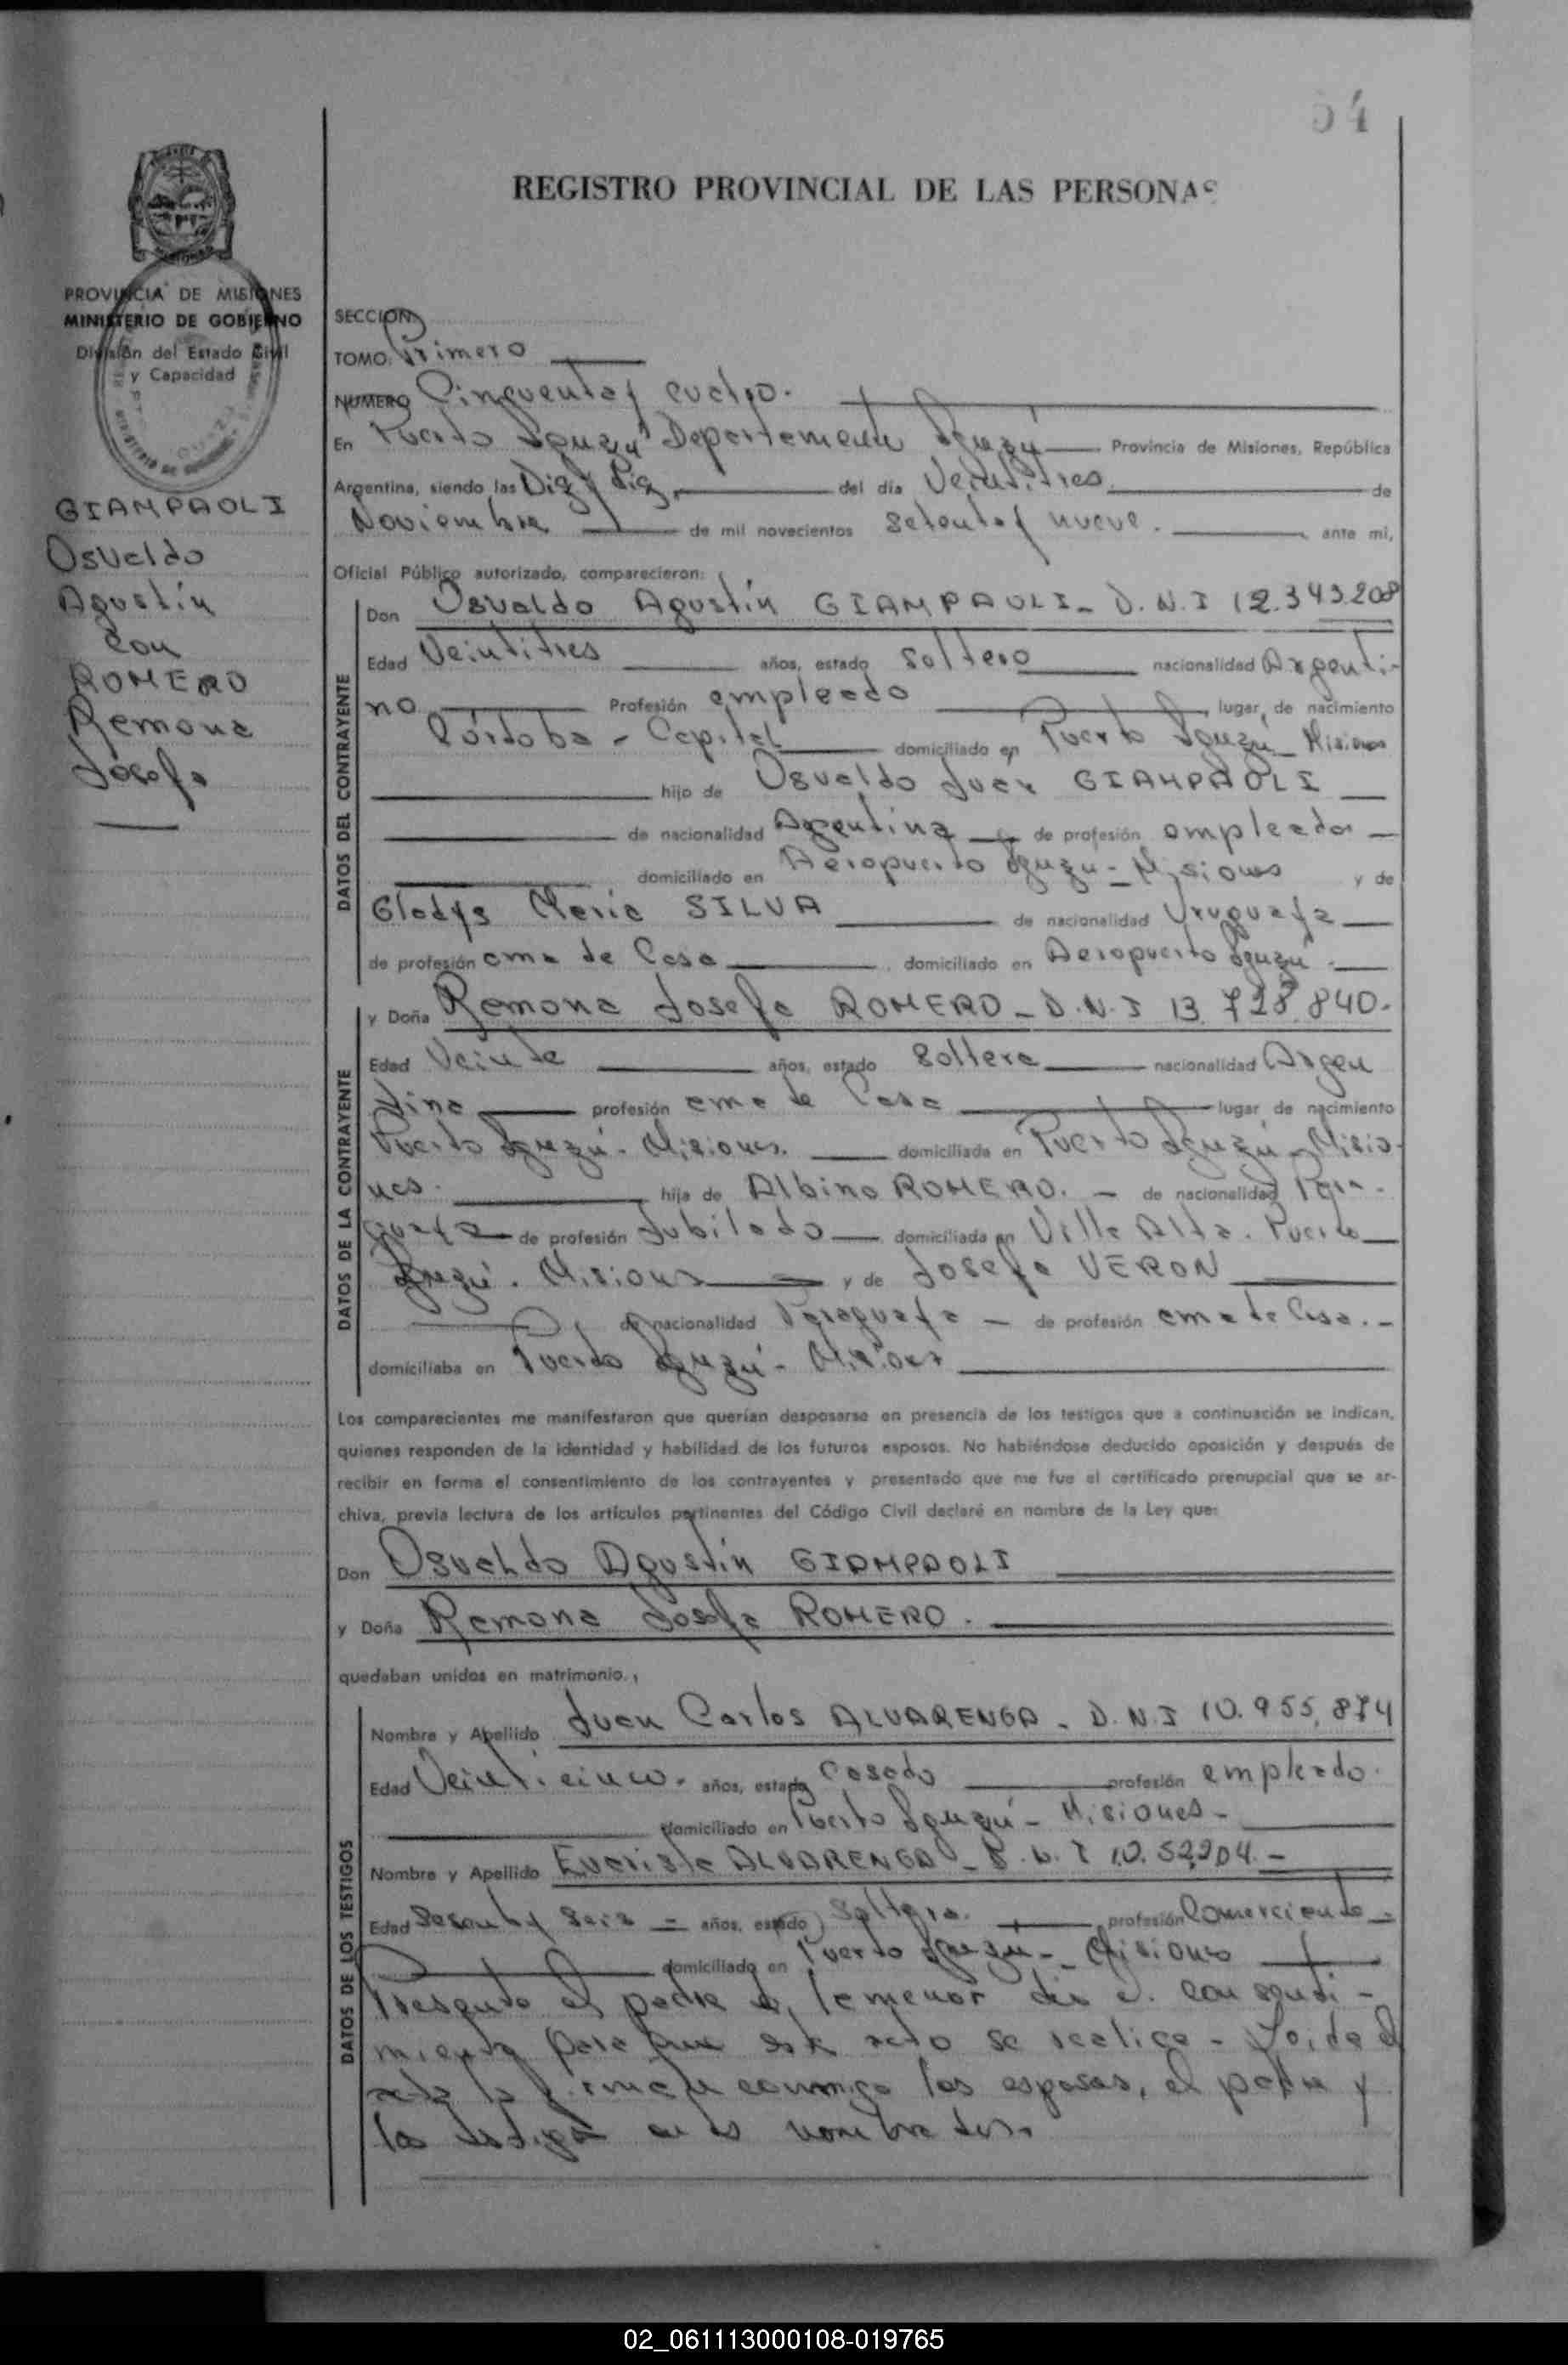 54
REGISTRO PROVINCIAL DE LAS PERSONAS
PROVINCIA DE MISIONES
MINISTERIO DE GOBIERNO
División del Estado Civil
y Capacidad
GIAMPAOLI
Osvaldo
Agustín
con
ROMERO
Ramona
Josefa
SECCION
TOMO Primero
NUMERO Cincuenta y cuatro.
En Puerto Iguazú Departamento Iguazú Provincia de Misiones, República
Argentina, siendo las Diez y Diez del día Veintitres de
Noviembre de mil novecientos setenta y nueve. ante mi,
Oficial Público autorizado, comparecieron:
DATOS DEL CONTRAYENTE
Don Osvaldo Agustín GIAMPAOLI - D.N.I 12.343.208
Edad Veintitres años, estado soltero nacionalidad Argenti-
no Profesión empleado lugar de nacimiento
Córdoba - Capital domiciliado en Puerto Iguazú - Misiones
hijo de Osvaldo Juan GIAMPAOLI
de nacionalidad Argentina de profesión empleado
domiciliado en Aeropuerto Iguazú - Misiones y de
Gladys María SILVA de nacionalidad Uruguaya
de profesión ama de Casa domiciliado en Aeropuerto Iguazú.
DATOS DE LA CONTRAYENTE
y Doña Ramona Josefa ROMERO - D.N.I 13.728.840.
Edad Veinte años, estado soltera nacionalidad Argen
tina profesión ama de Casa lugar de nacimiento
Puerto Iguazú - Misiones. domiciliada en Puerto Iguazú - Misio-
nes. hija de Albino ROMERO. - de nacionalidad Para-
guaya de profesión Jubilado domiciliada en Villa Alta. Puerto
Iguazú. Misiones y de Josefa VERON
de nacionalidad Paraguaya - de profesión ama de Casa. -
domiciliaba en Puerto Iguazú - Misiones
Los comparecientes me manifestaron que querían desposarse en presencia de los testigos que a continuación se indican,
quienes responden de la identidad y habilidad de los futuros esposos. No habiéndose deducido oposición y después de
recibir en forma el consentimiento de los contrayentes y presentado que me fue el certificado prenupcial que se ar-
chiva, previa lectura de los artículos pertinentes del Código Civil declaré en nombre de la Ley que:
Don Osvaldo Agustín GIAMPAOLI
y Doña Ramona Josefa ROMERO.
quedaban unidos en matrimonio.,
DATOS DE LOS TESTIGOS
Nombre y Apellido Juan Carlos ALVARENGA - D.N.I 10.955.874
Edad Veinticinco. años, estado Casado profesión empleado.
domiciliado en Puerto Iguazú - Misiones -
Nombre y Apellido Evarista ALVARENGA
Edad Sesenta y Seis años, estado Soltera. profesión Comerciante
domiciliado en Puerto Iguazú - Misiones
Presente el padre de la menor dió el consenti-
miento para que este acto se realice - Leida el
acta la firman conmigo los esposos, el padre y
los testigos
02_061113000108-019765